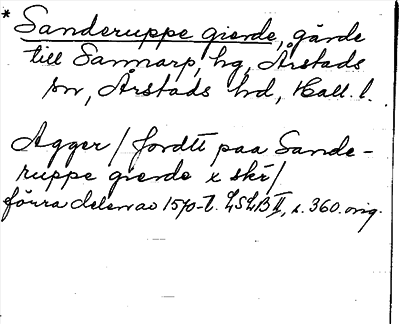 * Sanderuppe gierde, gärde
till Sannarp, hg, Årstads
sn, Årstads hd, Hall. l.
Agger / jordtt paa Sande-
ruppe gierde x skr /
förra delen av 1570-t. LSLB II, s. 360. orig.